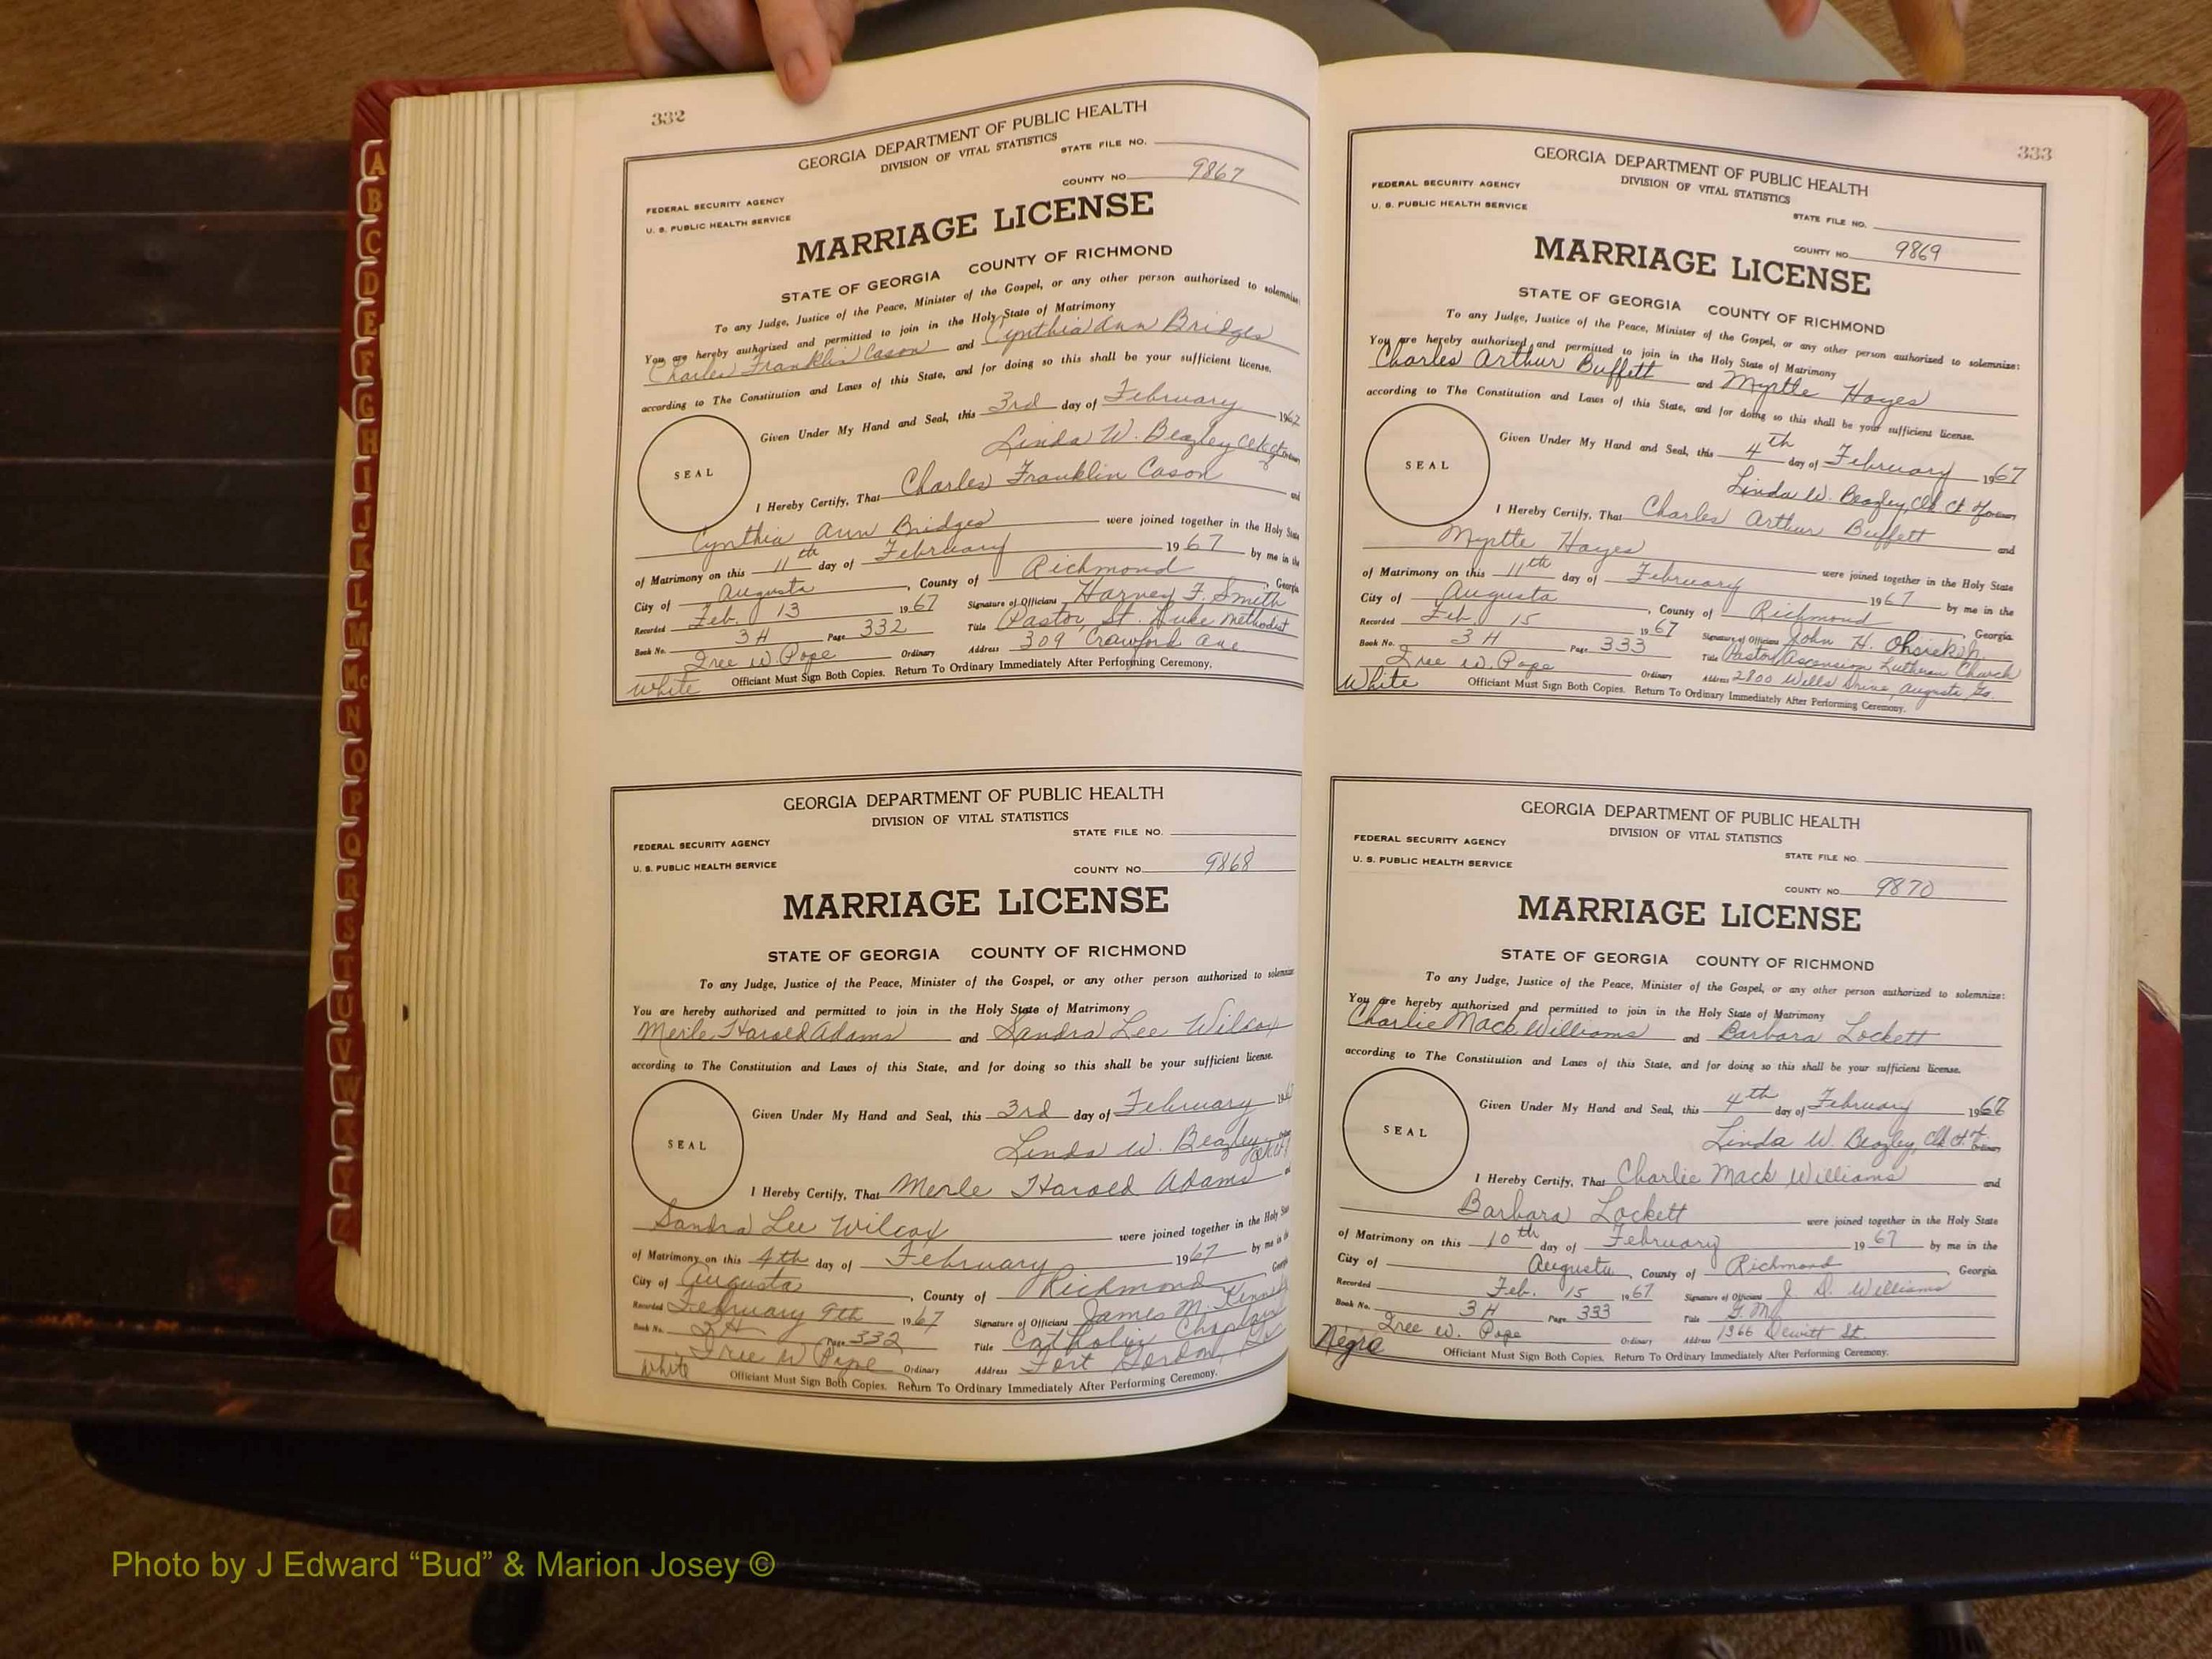 332
GEORGIA DEPARTMENT OF PUBLIC HEALTH
DIVISION OF VITAL STATISTICS
STATE FILE NO.
COUNTY NO. 9867
FEDERAL SECURITY AGENCY
U. S. PUBLIC HEALTH SERVICE
MARRIAGE LICENSE
STATE OF GEORGIA COUNTY OF RICHMOND
To any Judge, Justice of the Peace, Minister of the Gospel, or any other person authorized to solemnize:
You are hereby authorized and permitted to join in the Holy State of Matrimony
Charles Franklin Cason and Cynthia Ann Bridges
according to The Constitution and Laws of this State, and for doing so this shall be your sufficient license.
Given Under My Hand and Seal, this 3rd day of February 1967
SEAL
Linda W. Beazley Clk Ct of Ordinary
I Hereby Certify, That Charles Franklin Cason and
Cynthia Ann Bridges were joined together in the Holy State
of Matrimony on this 11th day of February 1967 by me in the
City of Augusta, County of Richmond, Georgia
Recorded Feb. 13 1967 Signature of Officians Harvey F. Smith
Book No. 3H Page 332 Title Pastor, St. Luke Methodist
Iree W. Pope Ordinary Address 309 Crawford Ave
White Officiant Must Sign Both Copies. Return To Ordinary Immediately After Performing Ceremony.
GEORGIA DEPARTMENT OF PUBLIC HEALTH
DIVISION OF VITAL STATISTICS
STATE FILE NO.
FEDERAL SECURITY AGENCY
U. S. PUBLIC HEALTH SERVICE
COUNTY NO. 9868
MARRIAGE LICENSE
STATE OF GEORGIA COUNTY OF RICHMOND
To any Judge, Justice of the Peace, Minister of the Gospel, or any other person authorized to solemnize
You are hereby authorized and permitted to join in the Holy State of Matrimony
Merle Harold Adams and Sandra Lee Wilcox
according to The Constitution and Laws of this State, and for doing so this shall be your sufficient license.
Given Under My Hand and Seal, this 3rd day of February 196
SEAL
Linda W. Beazley
I Hereby Certify, That Merle Harold Adams and
Sandra Lee Wilcox were joined together in the Holy State
of Matrimony on this 4th day of February 1967 by me in the
City of Augusta, County of Richmond Georgia
Recorded February 9th 1967 Signature of Officians James M. Kenne
Book No. 3H Page 332 Title Catholic Chaplain
Iree W Pope Ordinary Address Fort Gordon, Ga
White Officiant Must Sign Both Copies. Return To Ordinary Immediately After Performing Ceremony.
333
GEORGIA DEPARTMENT OF PUBLIC HEALTH
DIVISION OF VITAL STATISTICS
FEDERAL SECURITY AGENCY
U. S. PUBLIC HEALTH SERVICE
STATE FILE NO.
COUNTY NO. 9869
MARRIAGE LICENSE
STATE OF GEORGIA COUNTY OF RICHMOND
To any Judge, Justice of the Peace, Minister of the Gospel, or any other person authorized to solemnize:
You are hereby authorized and permitted to join in the Holy State of Matrimony
Charles Arthur Buffett and Myrtle Hayes
according to The Constitution and Laws of this State, and for doing so this shall be your sufficient license.
Given Under My Hand and Seal, this 4th day of February 1967
SEAL
Linda W. Beazley, Clk Ct of Ordinary
I Hereby Certify, That Charles Arthur Buffett and
Myrtle Hayes were joined together in the Holy State
of Matrimony on this 11th day of February 1967 by me in the
City of Augusta, County of Richmond, Georgia
Recorded Feb. 15 1967 Signature of Officians John H.
Book No. 3H Page 333 Title Pastor Ascension Lutheran Church
Iree W. Pope Ordinary Address 2800 Wells Drive, Augusta Ga.
White Officiant Must Sign Both Copies. Return To Ordinary Immediately After Performing Ceremony.
GEORGIA DEPARTMENT OF PUBLIC HEALTH
DIVISION OF VITAL STATISTICS
FEDERAL SECURITY AGENCY
U. S. PUBLIC HEALTH SERVICE
STATE FILE NO.
COUNTY NO. 9870
MARRIAGE LICENSE
STATE OF GEORGIA COUNTY OF RICHMOND
To any Judge, Justice of the Peace, Minister of the Gospel, or any other person authorized to solemnize:
You are hereby authorized and permitted to join in the Holy State of Matrimony
Charlie Mack Williams and Barbara Lockett
according to The Constitution and Laws of this State, and for doing so this shall be your sufficient license.
Given Under My Hand and Seal, this 4th day of February 1967
SEAL
Linda W. Beazley, Clk Ct. of Ordinary
I Hereby Certify, That Charlie Mack Williams and
Barbara Lockett were joined together in the Holy State
of Matrimony on this 10th day of February 1967 by me in the
City of Augusta, County of Richmond, Georgia
Recorded Feb. 15 1967 Signature of Officians J. D. Williams
Book No. 3H Page 333 Title G. M.
Iree W. Pope Ordinary Address 1366 Dewitt St.
Negro Officiant Must Sign Both Copies. Return To Ordinary Immediately After Performing Ceremony.
A
B
C
D
E
F
G
H
I
J
K
L
M
Mc
N
O
P
Q
R
S
T
U
V
W
X
Y
Z
Photo by J Edward “Bud” & Marion Josey ©